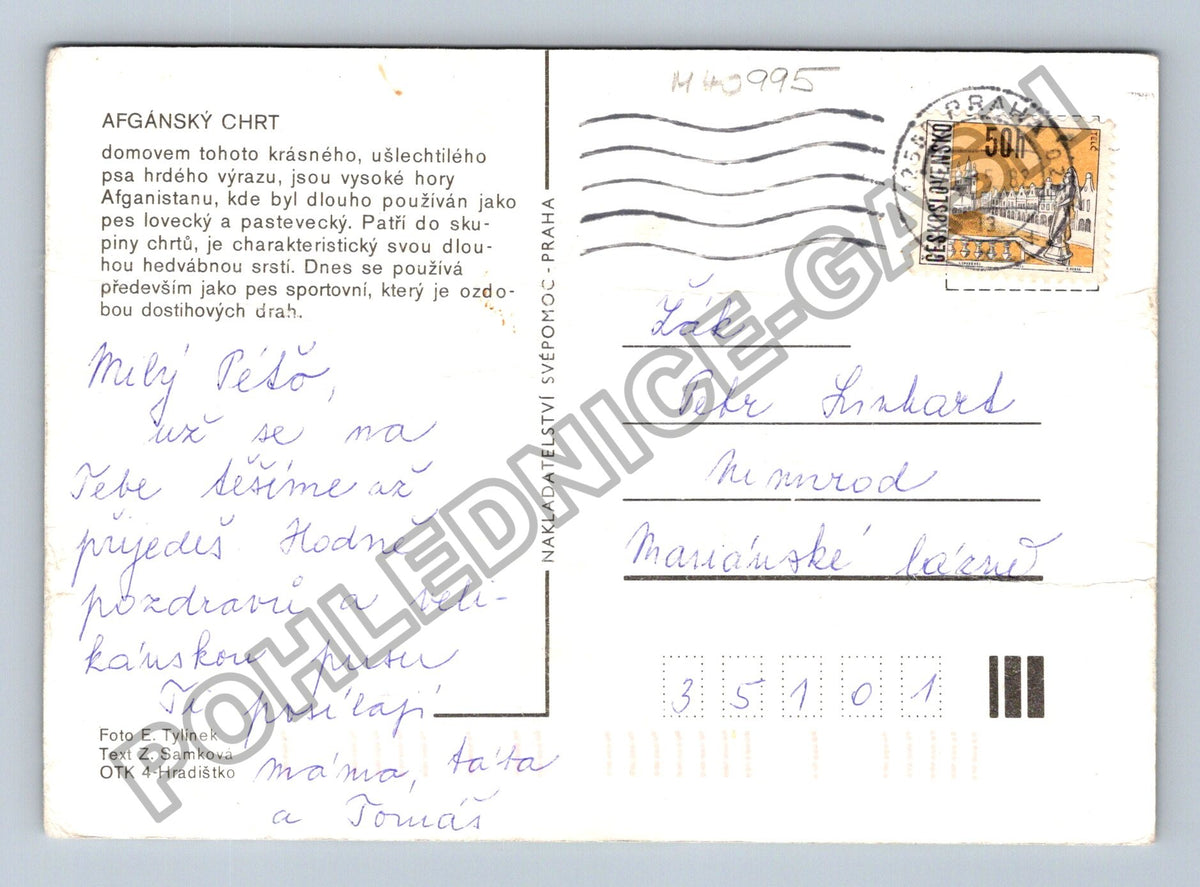 M40995
AFGÁNSKÝ CHRT
domovem tohoto krásného, ušlechtilého
psa hrdého výrazu, jsou vysoké hory
Afganistanu, kde byl dlouho používán jako
pes lovecký a pastevecký. Patří do sku-
piny chrtů, je charakteristický svou dlou-
hou hedvábnou srstí. Dnes se používá
především jako pes sportovní, který je ozdo-
bou dostihových drah.
Milý Péťo,
už se na
Tebe těšíme až
přijedeš Hodně
pozdravů a veli-
kánskou pusu
Ti posílají
máma, táta
a Tomáš
Foto E. Tylínek
Text Z. Samková
OTK 4-Hradištko
NAKLADATELSTVÍ SVÉPOMOC - PRAHA
PRAHA
ČESKOSLOVENSKO
50h
Žák
Petr Linhart
Nimrod
Mariánské lázně
35101
POHLEDNICE-GAJON